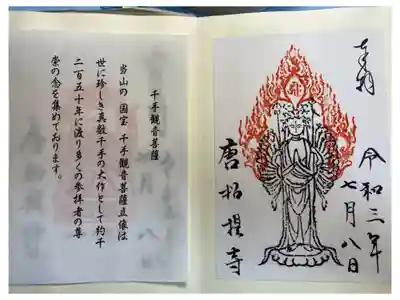 奉拝
令和三年
七月八日
唐招提寺
千手観音菩薩
当山の国宝 千手観音菩薩立像は
世に珍しき真数千手の大作として約千
二百五十年に渡り多くの参拝者の尊
崇の念を集めております。